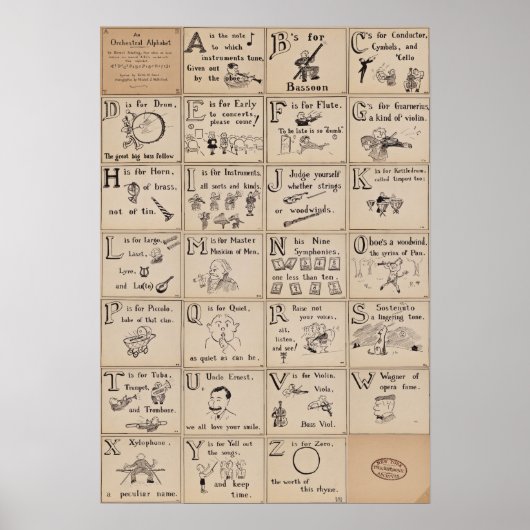 An
Orchestral Alphabet
A is the note
to which
instruments tune,
Given out
by the oboe
B's for
Bassoon
C's for Conductor,
Cymbals, and
'Cello
D is for Drum,
The great big bass fellow.
E is for Early
to concerts,
please come!
F is for Flute.
"To be late is so 'dumb'."
G's for Guarnerius,
a kind of violin.
H is for Horn,
of brass,
not of tin.
I is for Instruments,
all sorts and kinds.
J Judge yourself
whether strings
or woodwinds.
K is for Kettledrum,
called timpani too:
L is for Largo,
Liszt,
Lyre,
and Lu(te)
M is for Master
Musician of Men,
N his Nine
Symphonies,
one less than ten.
Oboe's a woodwind,
the syrinx of Pan.
P is for Piccolo,
babe of that clan.
Q is for Quiet,
as quiet as can be.
R Raise not
your voices,
sit,
listen,
and see!
S Sostenuto
a lingering tone.
T is for Tuba,
Trumpet,
and Trombone.
Uncle Ernest,
we all love your smile.
V is for Violin,
Viola,
Bass Viol.
Wagner of
opera fame.
Xylophone,
a peculiar name.
Y is for Yell out
the songs,
and keep
time.
Z is for Zero,
the worth of
this rhyme.
NEW YORK
PHILHARMONIC
ARCHIVES